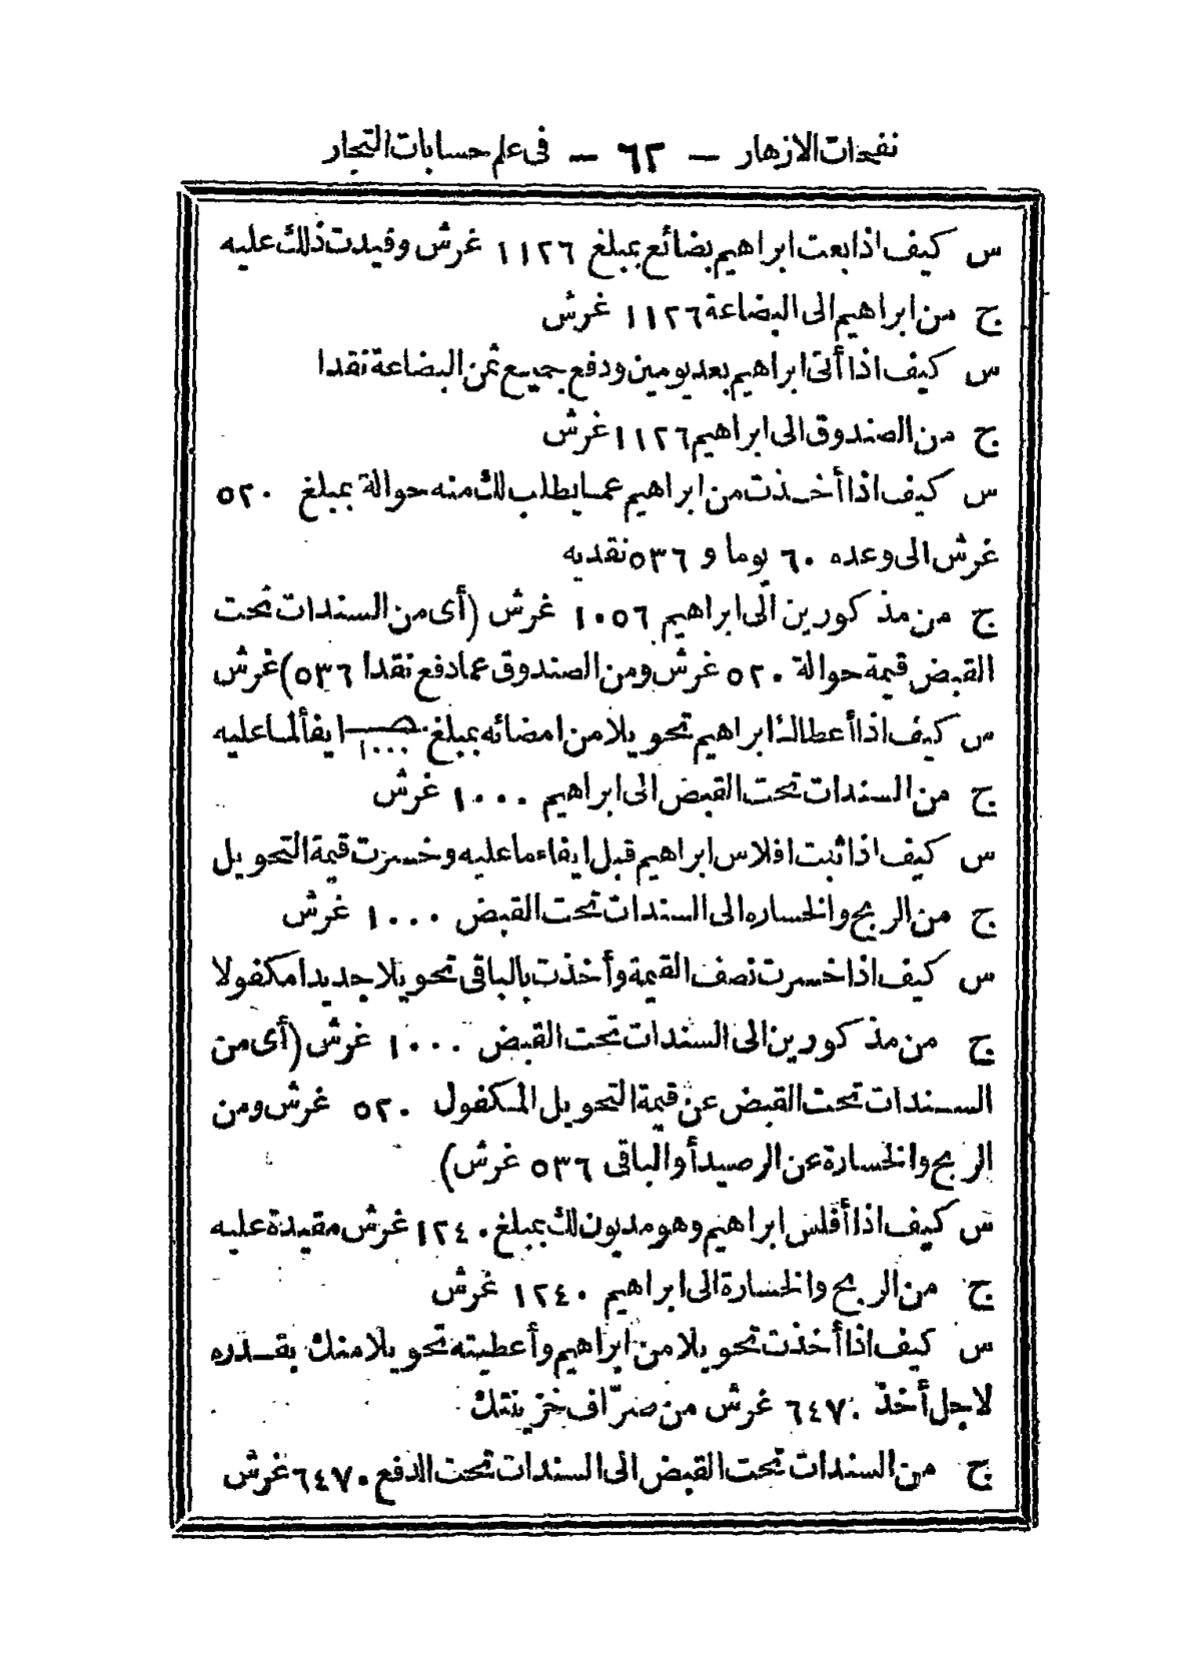 نفحات الازهار — ٦٢ — فى علم حسابات التجار
س كيف اذا بعت ابراهيم بضائع بمبلغ ١١٢٦ غرش وقيدت ذلك عليه
ج من ابراهيم الى البضاعة ١١٢٦ غرش
س كيف اذا أتى ابراهيم بعد يومين ودفع جميع ثمن البضاعة نقدا
ج من الصندوق الى ابراهيم ١١٢٦ غرش
س كيف اذا أخذت من ابراهيم عما يطلب لك منه حوالة بمبلغ ٥٢٠
غرش الى وعده ٦٠ يوما و ٥٣٦ نقديه
ج من مذكورين الى ابراهيم ١٠٥٦ غرش (أى من السندات تحت
القبض قيمة حوالة ٥٢٠ غرش ومن الصندوق عما دفع نقدا ٥٣٦) غرش
س كيف اذا أعطاك ابراهيم تحويلا من امضائه بمبلغ ١٠٠٠ ايفأ لما عليه
ج من السندات تحت القبض الى ابراهيم ١٠٠٠ غرش
س كيف اذا ثبت افلاس ابراهيم قبل ايفاء ما عليه وخسرت قيمة التحويل
ج من الربح والخساره الى السندات تحت القبض ١٠٠٠ غرش
س كيف اذا خسرت نصف القيمة وأخذت بالباقى تحويلا جديدا مكفولا
ج من مذكورين الى السندات تحت القبض ١٠٠٠ غرش (أى من
السندات تحت القبض عن قيمة التحويل المكفول ٥٢٠ غرش ومن
الربح والخسارة عن الرصيد أو الباقى ٥٣٦ غرش)
س كيف اذا أفلس ابراهيم وهو مديون لك بمبلغ ١٢٤٠ غرش مقيدة عليه
ج من الربح والخسارة الى ابراهيم ١٢٤٠ غرش
س كيف اذا أخذت تحويلا من ابراهيم وأعطيته تحويلا منك بقدره
لاجل أخذ ٦٤٧٠ غرش من صرّاف خزينتك
ج من السندات تحت القبض الى السندات تحت الدفع ٦٤٧٠ غرش